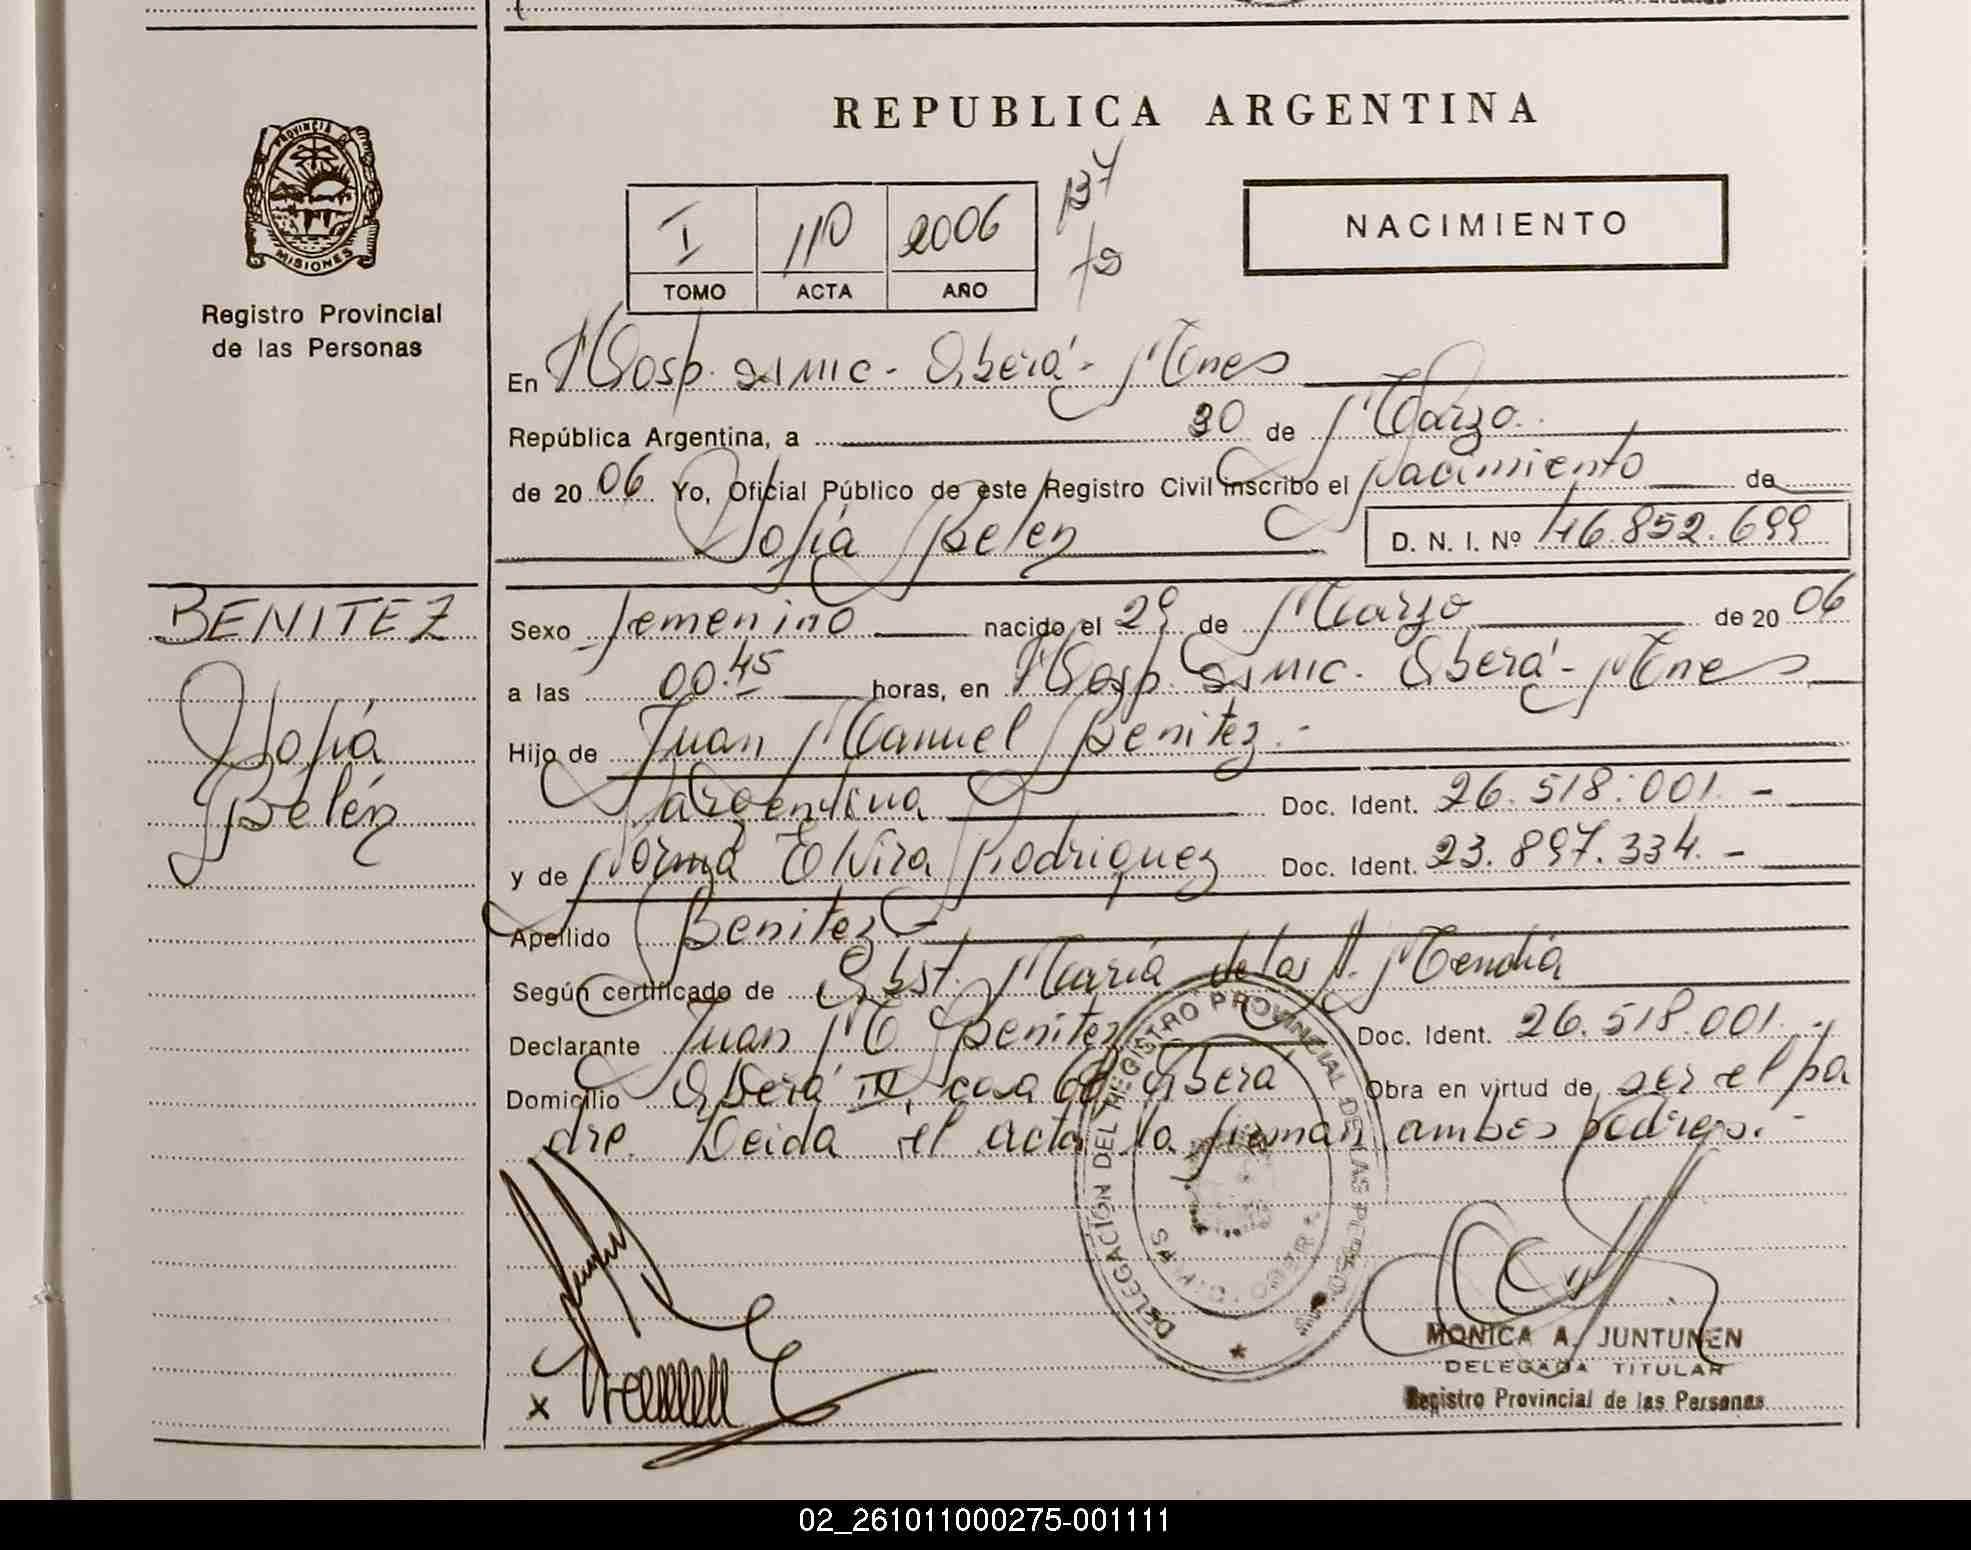 REPUBLICA ARGENTINA
PROVINCIA D
MISIONES
Registro Provincial
de las Personas
I 110 2006
TOMO ACTA AÑO
137
NACIMIENTO
En Hosp. SAMIC - Oberá - Mnes
República Argentina, a 30 de Marzo
de 20 06 Yo, Oficial Público de este Registro Civil inscribo el nacimiento de
Sofía Belen D. N. I. Nº 46.852.699
BENITEZ
Sofía
Belén
Sexo femenino nacido el 29 de Marzo de 20 06
a las 00.45 horas, en Hosp. SAMIC. Oberá - Mnes
Hijo de Juan Manuel Benitez.-
argentina Doc. Ident. 26.518.001.-
y de Norma Elvira Rodriguez Doc. Ident. 23.897.334.-
Apellido Benitez -
Según certificado de Obst. María de las N. Mendia
Declarante Juan M Benitez Doc. Ident. 26.518.001.-
Domicilio Oberá III, casa 60 Obera Obra en virtud de ser el pa
dre. Leida el acta la firman ambos padres.-
DELEGACIÓN DEL REGISTRO PROVINCIAL DE LAS PERSONAS
x
MONICA A. JUNTUNEN
DELEGADA TITULAR
Registro Provincial de las Personas
02_261011000275-001111